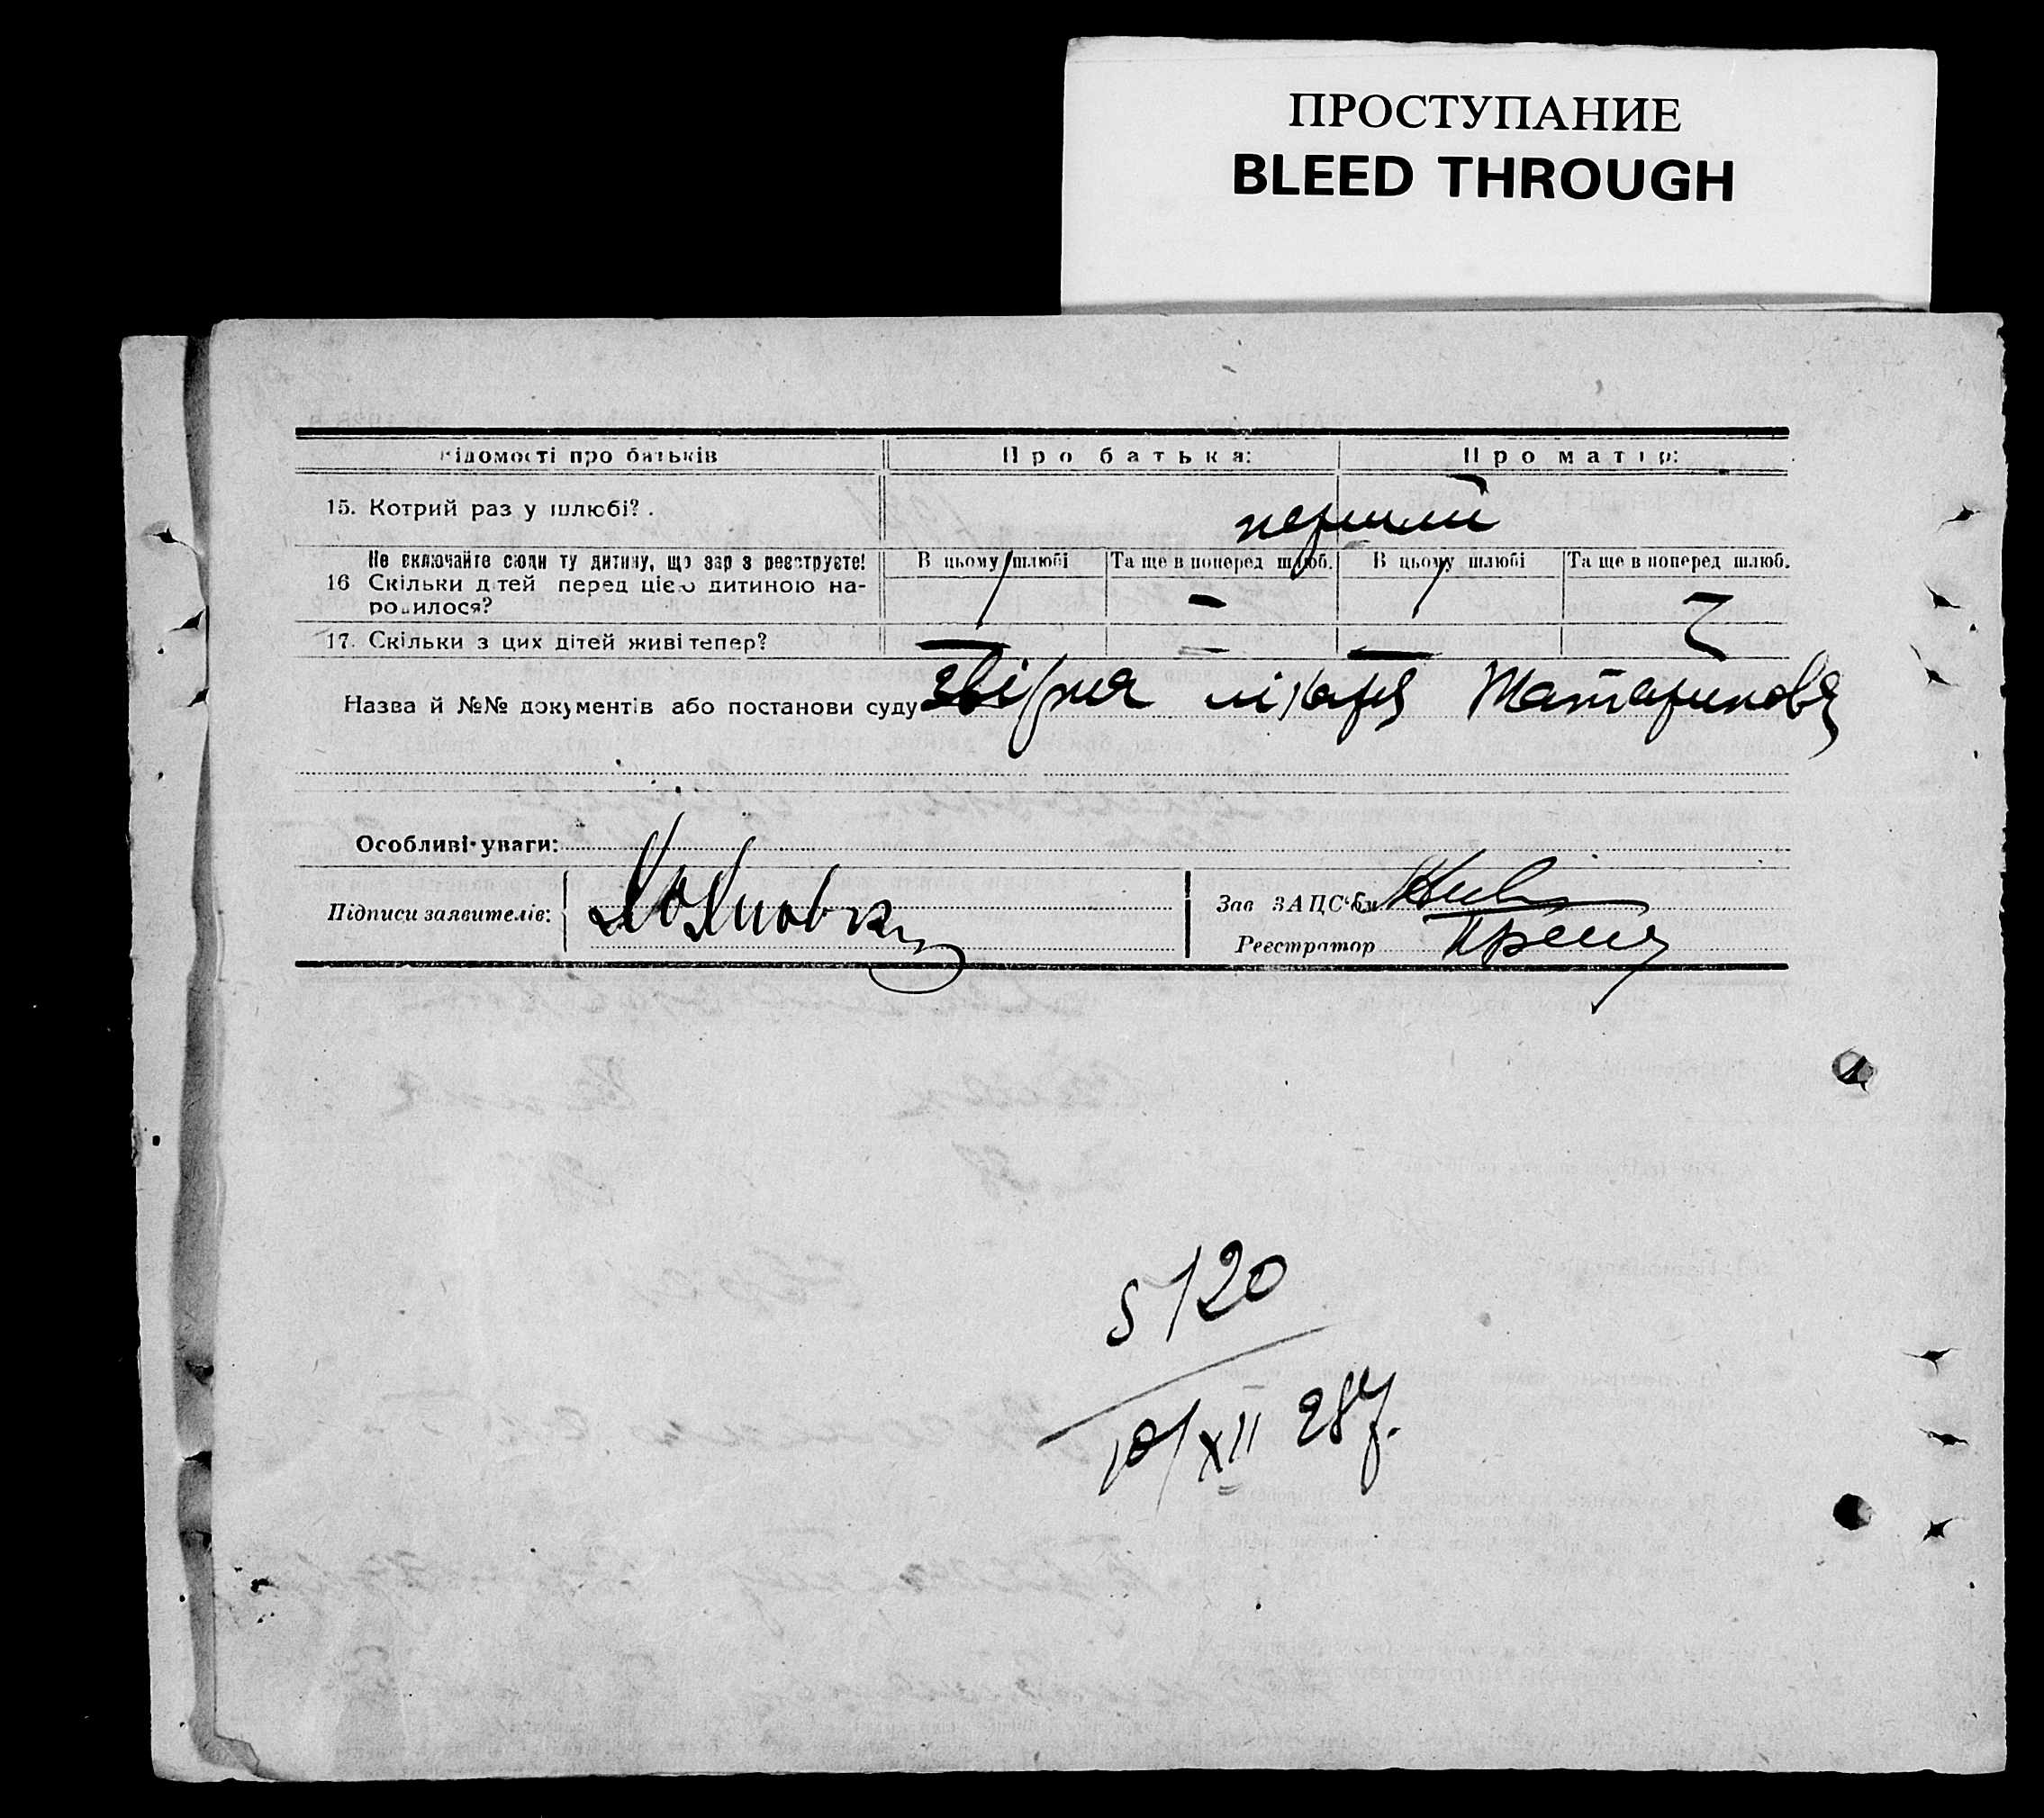 ПРОСТУПАНИЕ
BLEED THROUGH
Відомості про батьків Про батька: Про матір:
15. Котрий раз у шлюбі? . перший
Не включайте сюди ту дитину, що зараз реєструєте! В цьому шлюбі Та ще в поперед шлюб. В цьому шлюбі Та ще в поперед шлюб.
16 Скільки дітей перед цією дитиною на-
родилося? 1 – 1
17. Скільки з цих дітей живі тепер? – – –
Назва й №№ документів або постанови суду лікаря Татаринова
Особливі уваги:
Підписи заявителів:
Зав ЗАЦС'ом
Реєстратор
5120
10/XII 28 р.